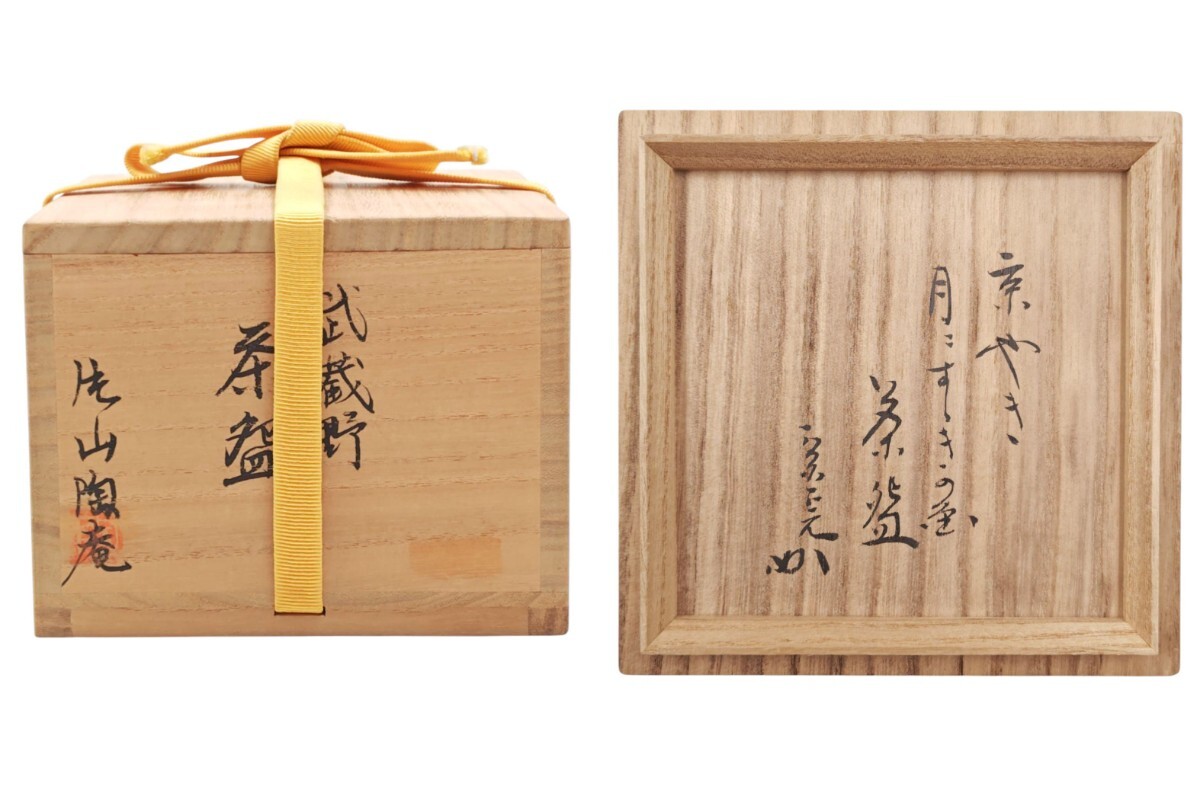 武蔵野
茶盌
片山陶庵
京やき
月にすゝきの画
茶盌